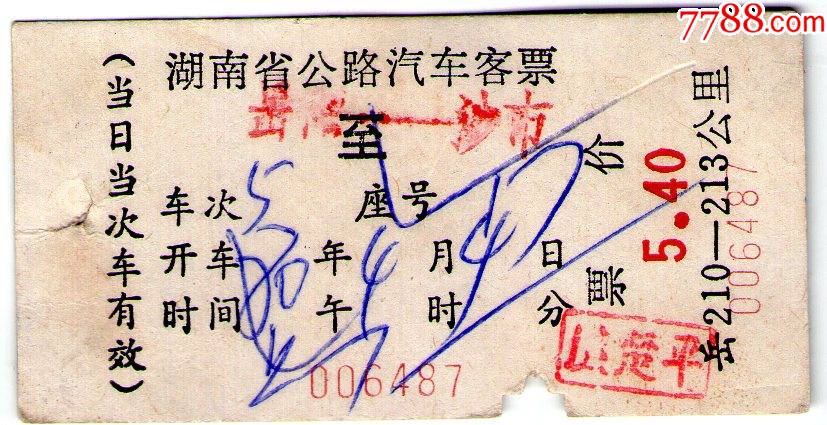 7788.com
湖南省公路汽车客票
岳阳一沙市
至
车次 座号
开车 年 月 日
时间 午 时 分
票价
5.40
岳210—213公里
006487
006487
(当日当次车有效)